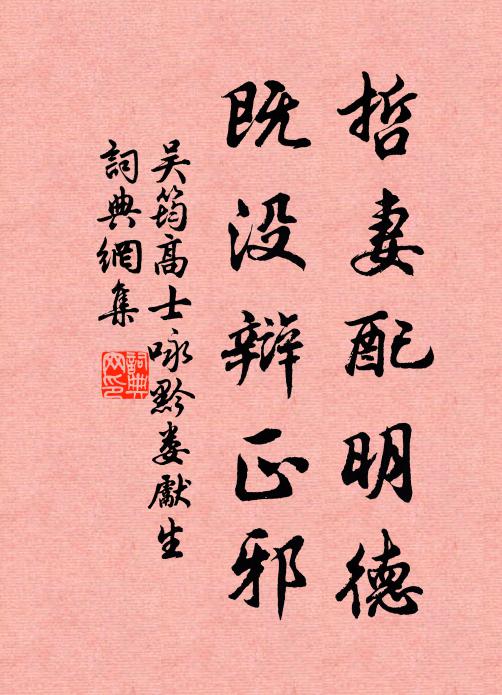 哲妻配明德
既没辩正邪
吴筠高士咏黔娄献生
词典網集
詞典
网印